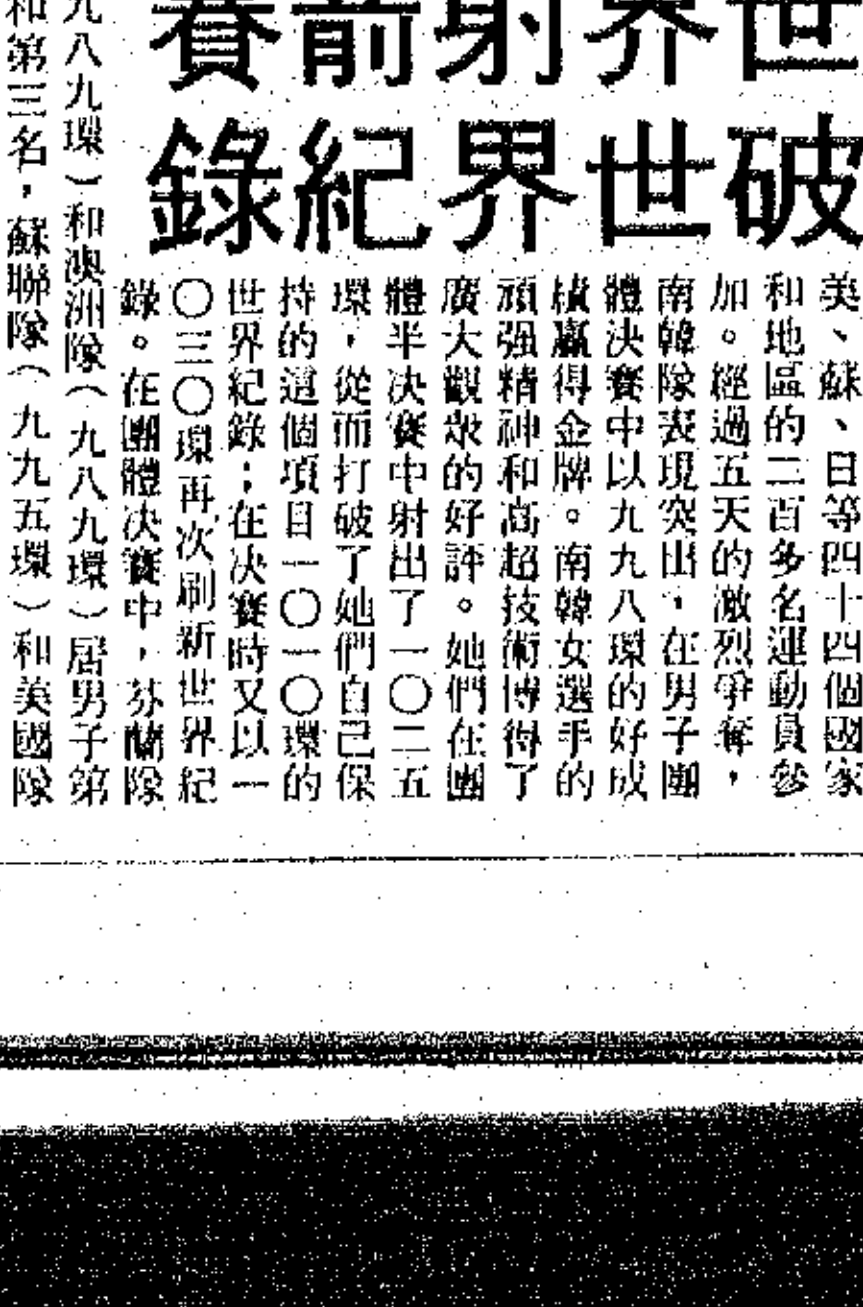 世界射箭賽
破世界紀錄
美、蘇、日等四十四個國家
和地區的二百多名運動員參
加。經過五天的激烈爭奪，
南韓隊表現突出，在男子團
體決賽中以九九八環的好成
績贏得金牌。南韓女選手的
頑强精神和高超技術博得了
廣大觀衆的好評。她們在團
體半决賽中射出了一〇二五
環，從而打破了她們自己保
持的這個項目一〇一〇環的
世界紀錄；在决賽時又以一
〇三〇環再次刷新世界紀
錄。在團體决賽中，芬蘭隊
九八九環）和澳洲隊（九八九環）居男子第
和第三名，蘇聯隊（九九五環）和美國隊